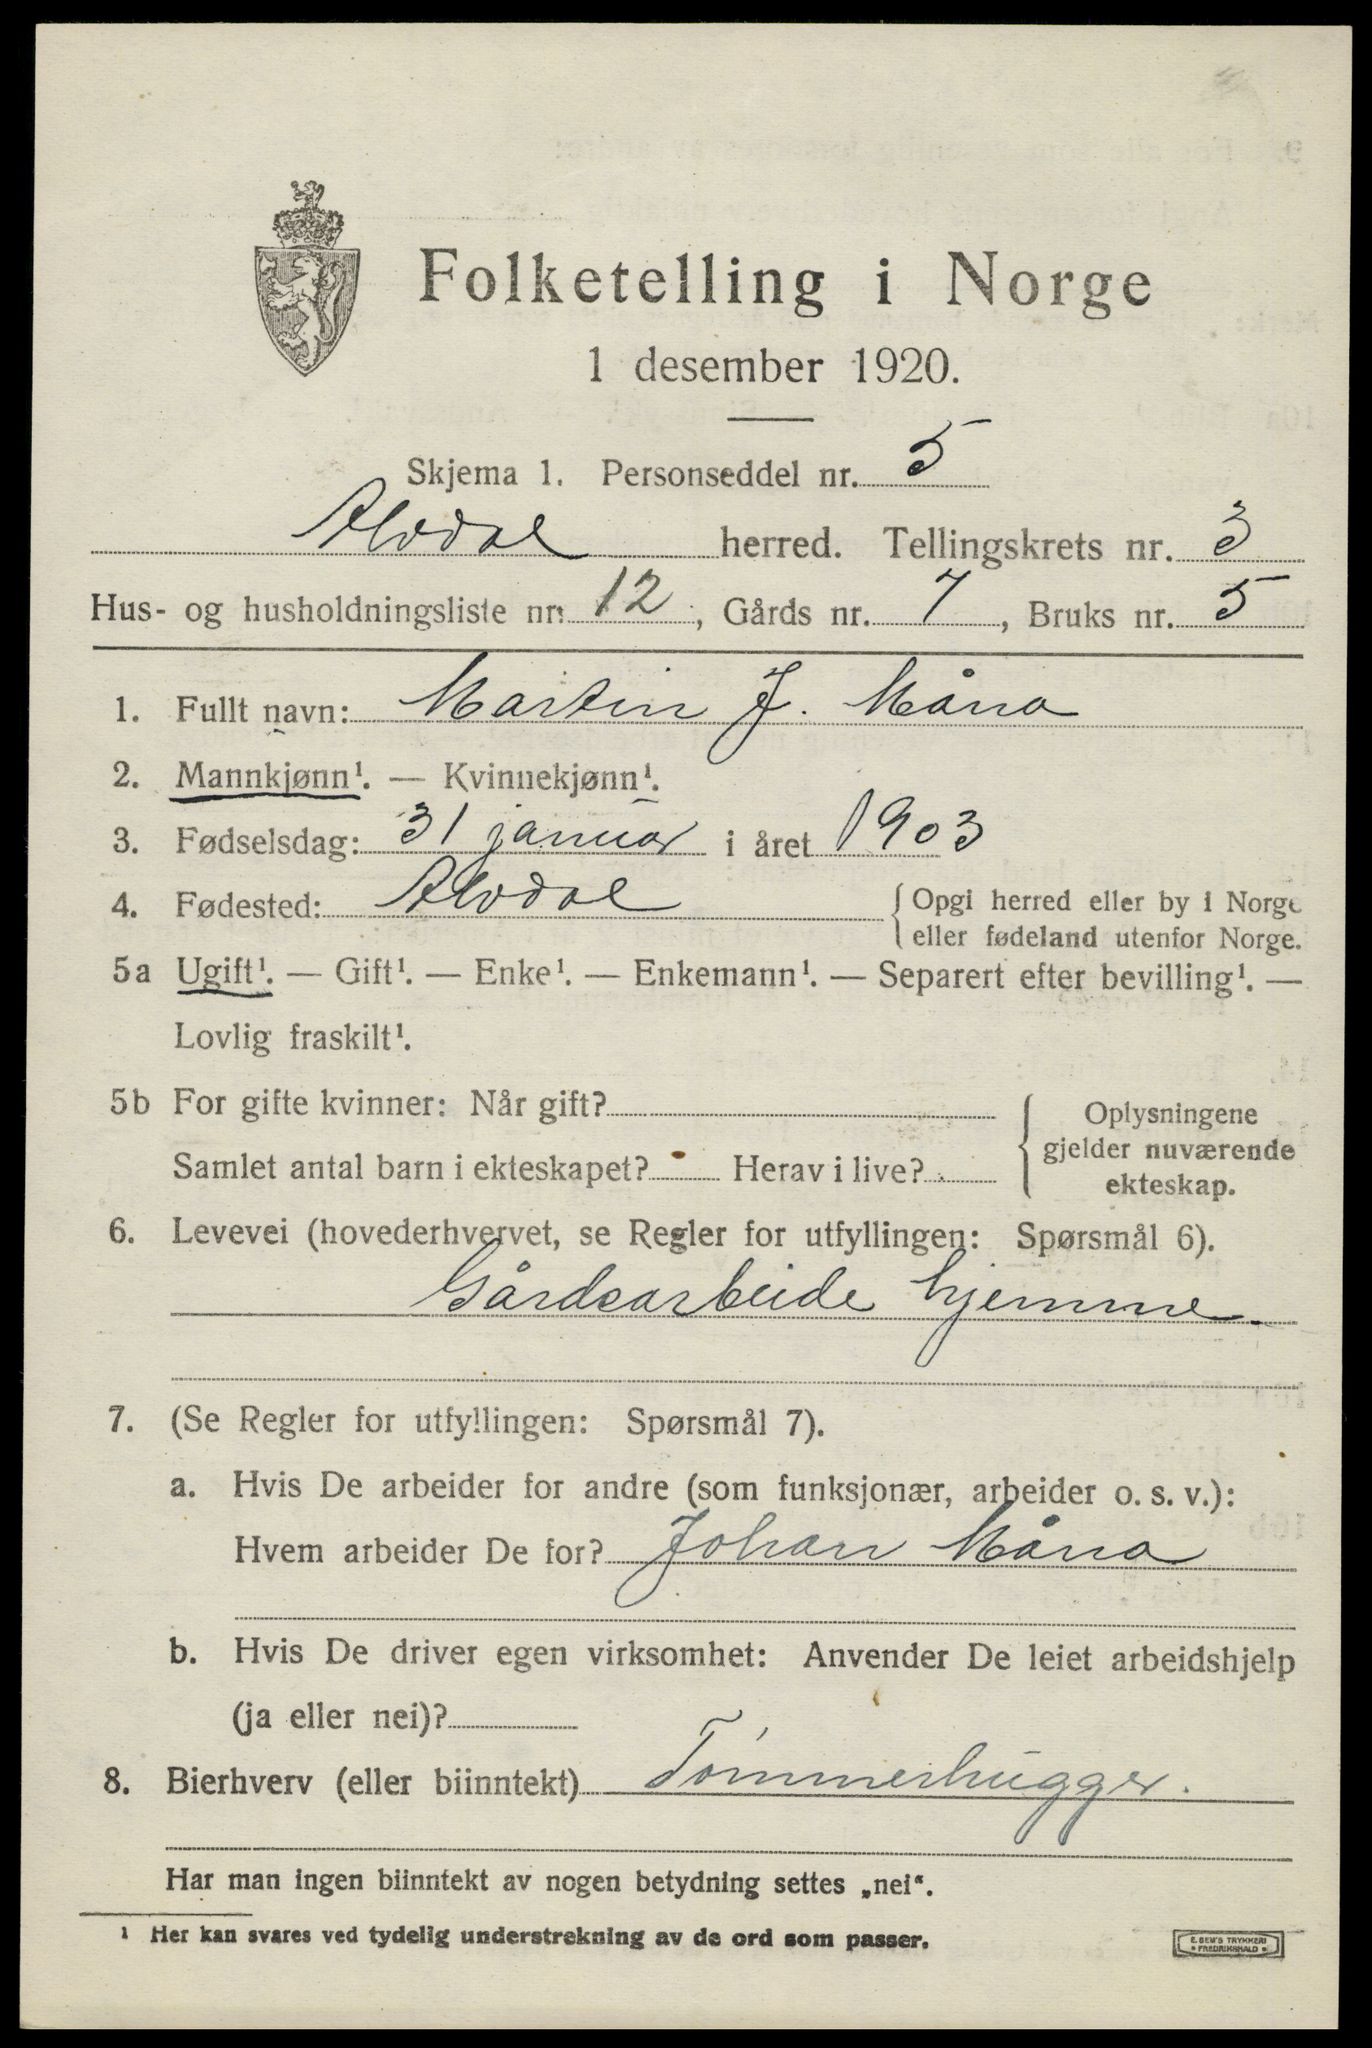 Folketelling i Norge
1 desember 1920.
Skjema 1. Personseddel nr. 5
Alvdal herred. Tellingskrets nr. 3
Hus- og husholdningsliste nr. 12, Gårds nr. 7, Bruks nr. 5
1. Fullt navn: Martin J. Måna
2. Mannkjønn¹. — Kvinnekjønn¹.
3. Fødselsdag: 31 januar i året 1903
4. Fødested: Alvdal { Opgi herred eller by i Norge
eller fødeland utenfor Norge.
5a Ugift¹. — Gift¹. — Enke¹. — Enkemann¹. — Separert efter bevilling¹. —
Lovlig fraskilt¹.
5b For gifte kvinner: Når gift?
Samlet antal barn i ekteskapet? Herav i live?
Oplysningene
gjelder nuværende
ekteskap.
6. Levevei (hovederhvervet, se Regler for utfyllingen: Spørsmål 6).
Gårdsarbeide hjemme.
7. (Se Regler for utfyllingen: Spørsmål 7).
a. Hvis De arbeider for andre (som funksjonær, arbeider o. s. v.):
Hvem arbeider De for? Johan Måna
b. Hvis De driver egen virksomhet: Anvender De leiet arbeidshjelp
(ja eller nei)?
8. Bierhverv (eller biinntekt) Tømmerhugger.
Har man ingen biinntekt av nogen betydning settes „nei“.
¹ Her kan svares ved tydelig understrekning av de ord som passer.
E. SEM'S TRYKKERI
FREDRIKSHALD